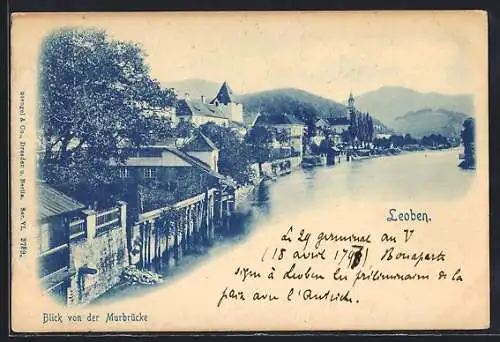 Stengel & Co., Dresden u. Berlin. Ser. VI. 2789.
Leoben.
Le 29 germinal an V
(18 avril 1797) Bonaparte
signe à Leoben les préliminaires de la
paix avec l'Autriche.
Blick von der Murbrücke